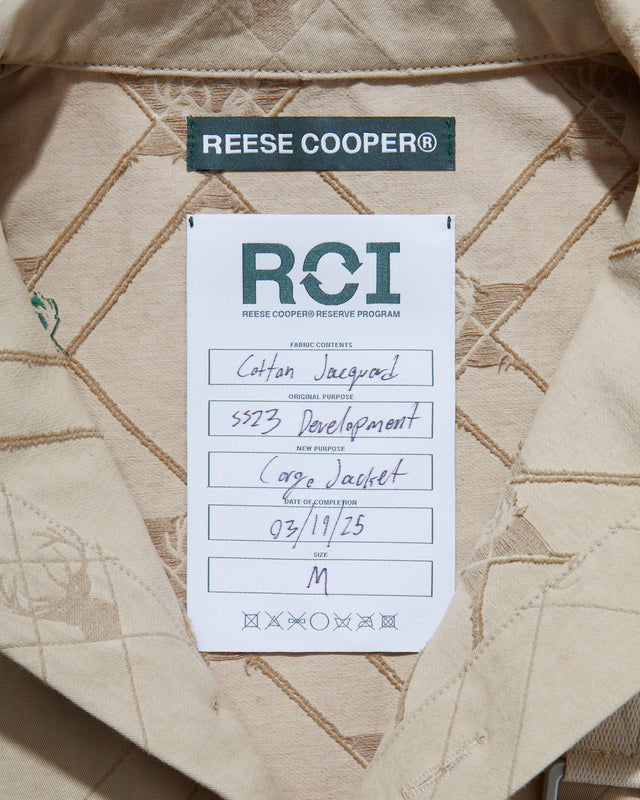 REESE COOPER®
RCI
REESE COOPER® RESERVE PROGRAM
FABRIC CONTENTS
Cotton Jacquard
ORIGINAL PURPOSE
SS23 Development
NEW PURPOSE
Cargo Jacket
DATE OF COMPLETION
03/19/25
SIZE
M